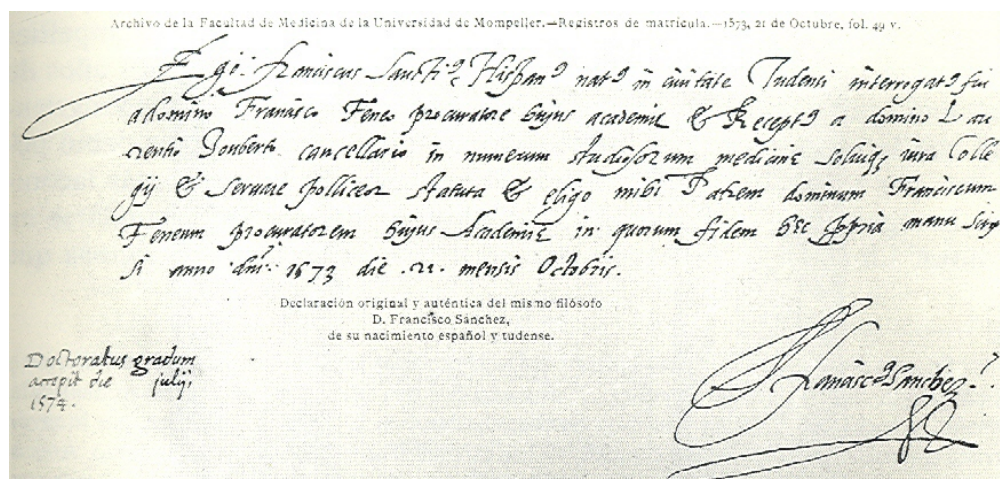 Archivo de la Facultad de Medicina de la Universidad de Mompeller.—Registros de matrícula.—1573, 21 de Octubre, fol. 49 v.
Ego Franciscus Sancti⁹ Hispan⁹ nat⁹ in ciuitate Tudensi interrogat⁹ fui
a domino Francisco Feneo procuratore hujus academię & Recept⁹ a domino Lau
rentio Jouberto cancellario in numerum studiosorum medicinę soluiq; iura Colle
gij & seruare polliceor statuta & eligo mihi Patrem dominum Franciscum
Feneum procuratorem hujus Academię in quorum fidem hęc ppria manu scrip
si anno dni: 1573 die .21. mensis Octobris.
Declaración original y auténtica del mismo filósofo
D. Francisco Sánchez,
de su nacimiento español y tudense.
Doctoratus gradum
accepit die julij,
1574.
Francisc⁹ Sanchez